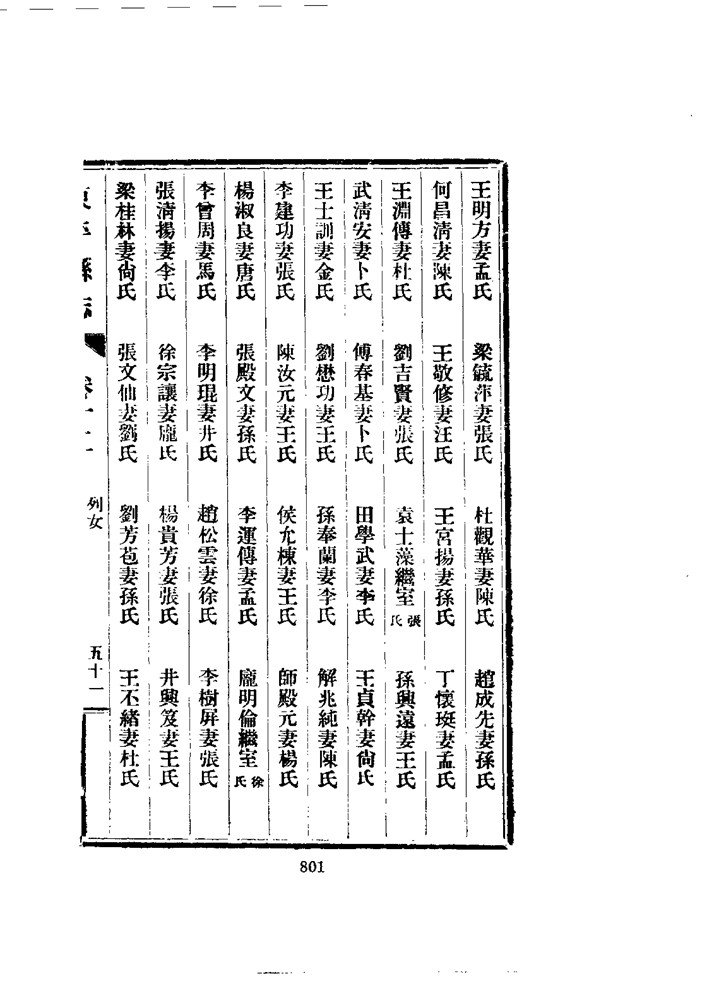 王明方妻孟氏 梁毓萍妻張氏 杜觀華妻陳氏 趙成先妻孫氏
何昌清妻陳氏 王敬修妻汪氏 王宮揚妻孫氏 丁懷珽妻孟氏
王淵傳妻杜氏 劉吉賢妻張氏 袁士藻繼室張氏 孫興遠妻王氏
武清安妻卜氏 傅春基妻卜氏 田學武妻李氏 王貞幹妻尙氏
王士訓妻金氏 劉懋功妻王氏 孫奉蘭妻李氏 解兆純妻陳氏
李建功妻張氏 陳汝元妻王氏 侯允棟妻王氏 師殿元妻楊氏
楊淑良妻唐氏 張殿文妻孫氏 李運傳妻孟氏 龐明倫繼室徐氏
李曾周妻馬氏 李明琨妻井氏 趙松雲妻徐氏 李樹屏妻張氏
張清揚妻李氏 徐宗讓妻龐氏 楊貴芳妻張氏 井興笈妻王氏
梁桂林妻尙氏 張文仙妻劉氏 劉芳苞妻孫氏 王丕緒妻杜氏
東平縣志 卷十 列女 五十一
801